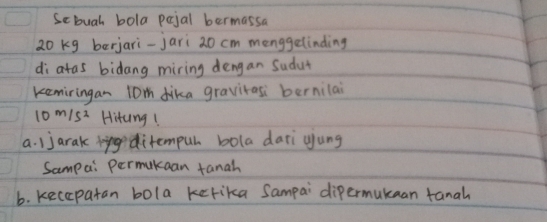 Sebuah bola pejal bermassa
20 kg berjari-jari 20 cm menggelinding
di atas bidang miring dengan sudut
kemiringan 10m jika gravitasi bernilai
10 m/s² Hitung!
a. jarak yg ditempuh bola dari ujung
sampai permukaan tanah
b. kecepatan bola ketika sampai dipermukaan tanah